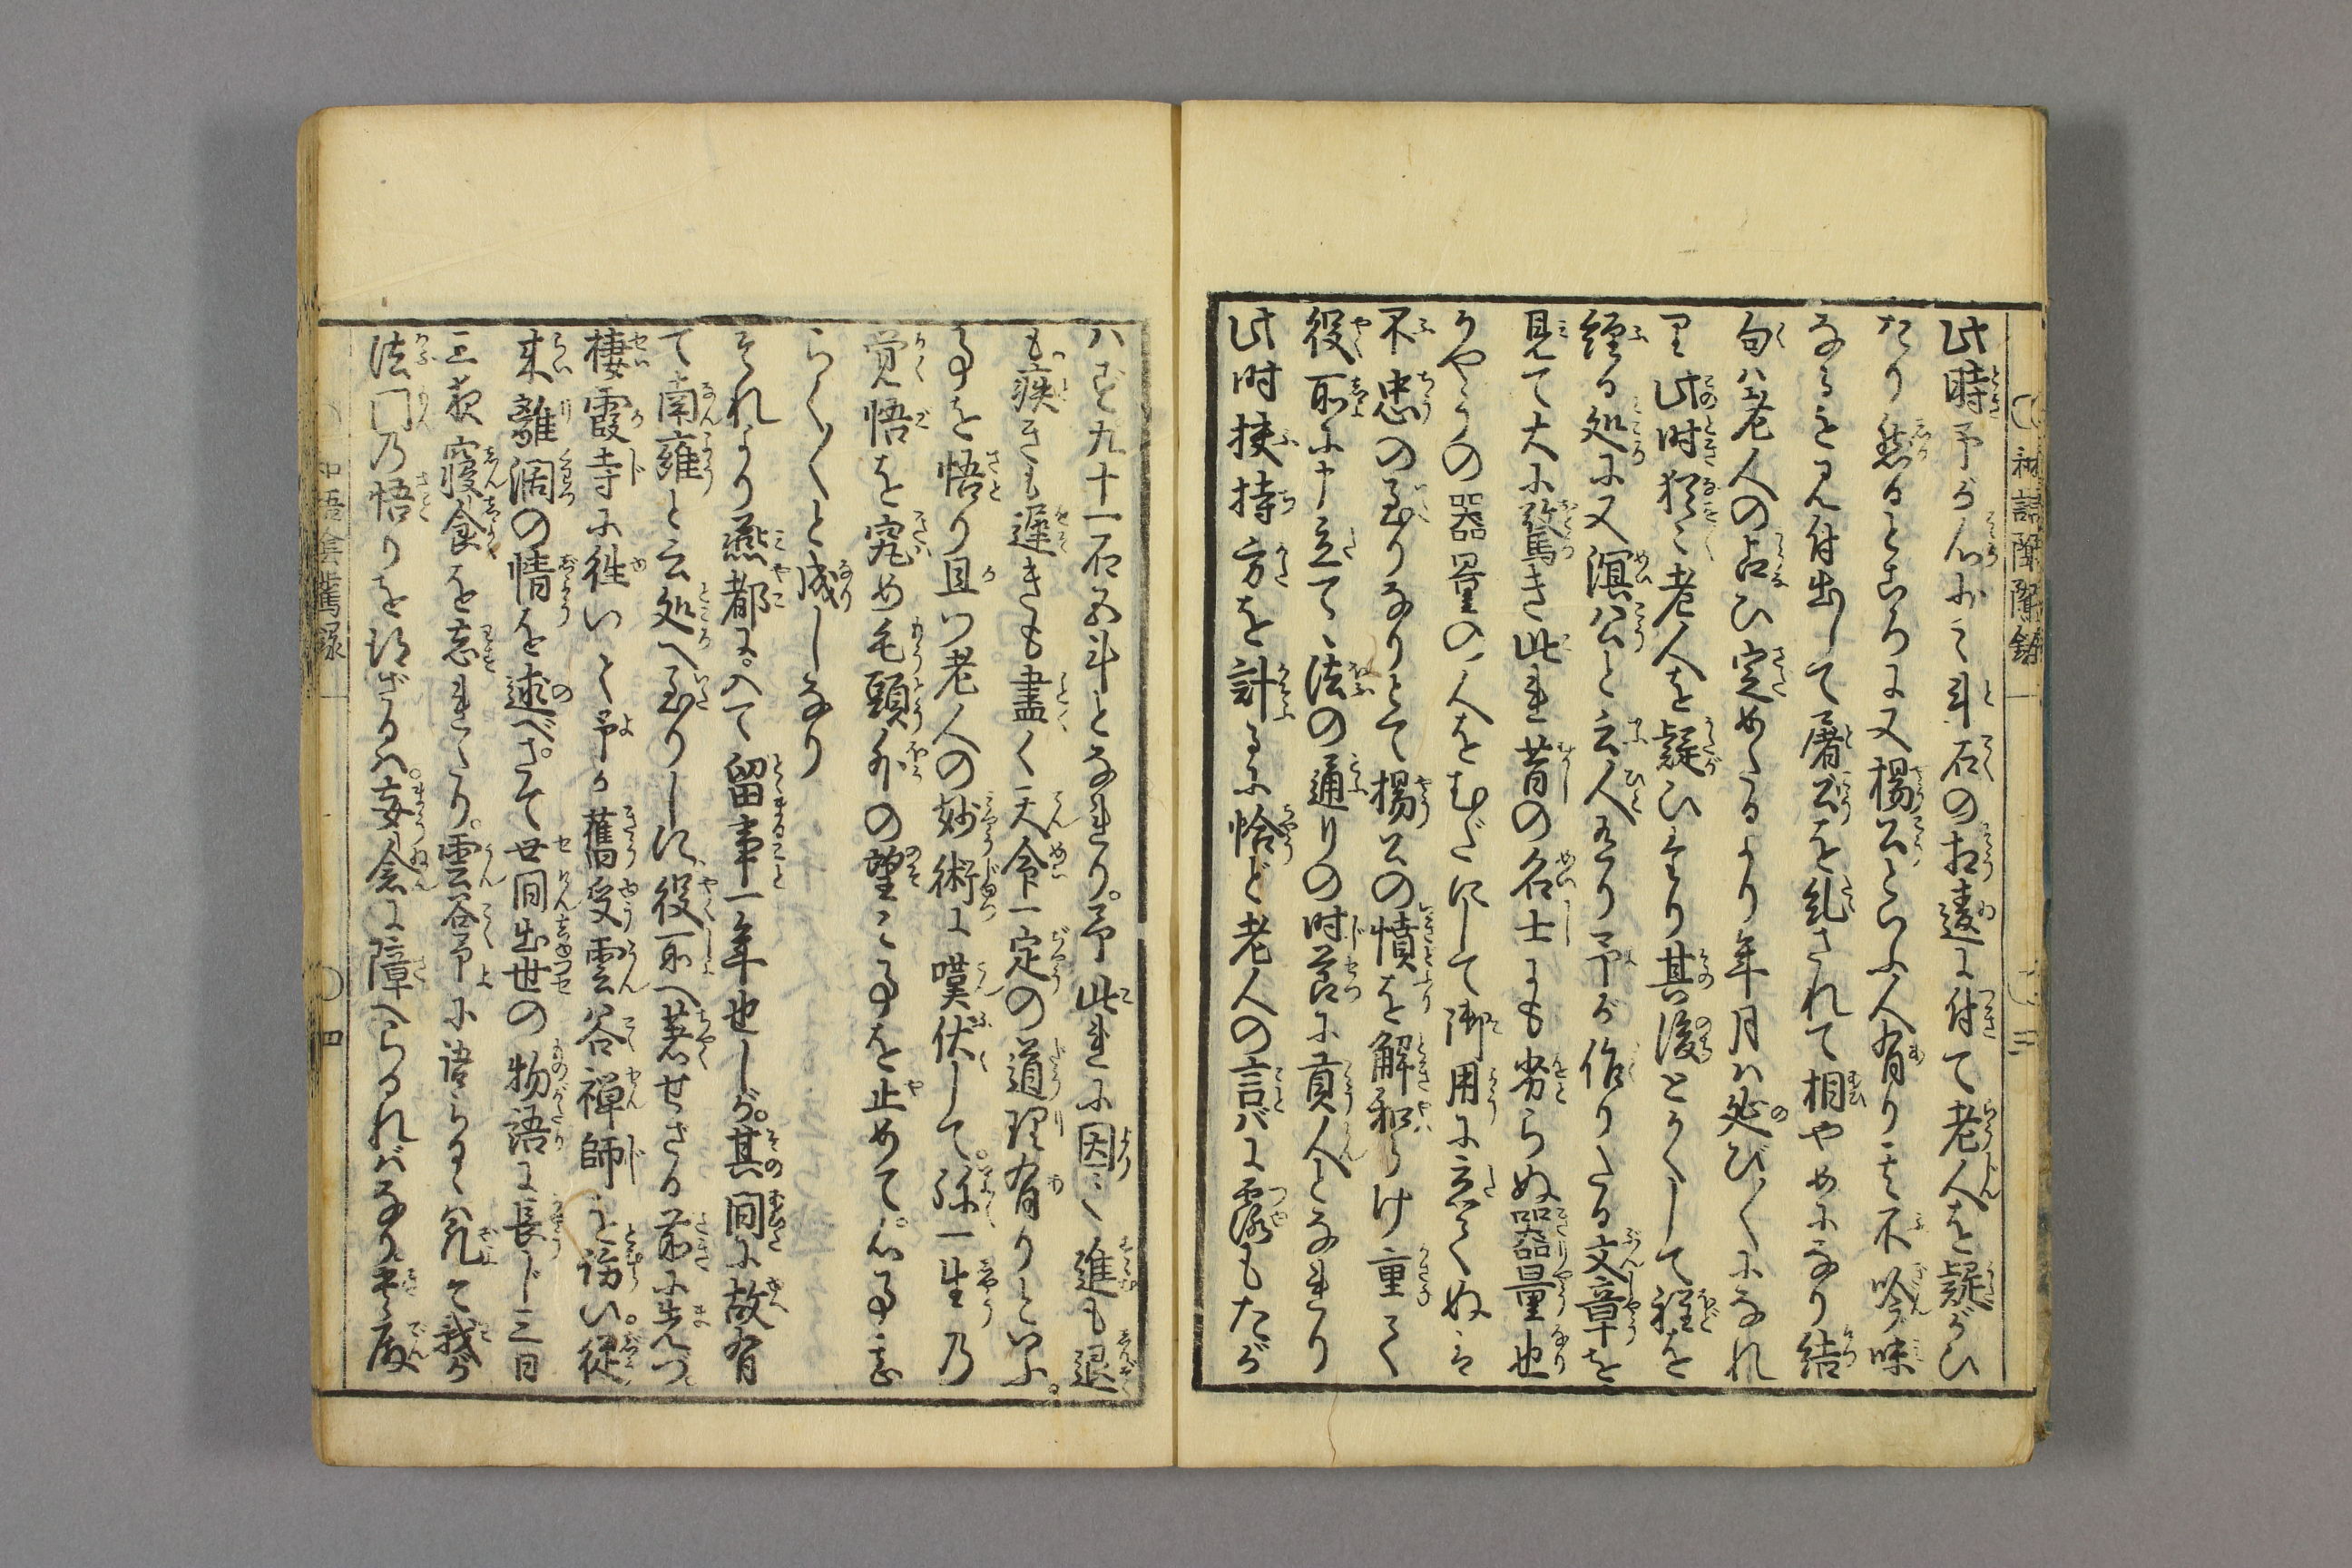 和語陰隲録
三
此時予が心におゐて斗石の相違に付て老人を疑がひ
たり然るところに又楊公といふ人有り其不吟味
なるを見付出して屠公を糺されて相やめになり結
句ハ孔老人の占ひ定めたるより年月ハ延び〳〵になれ
り此時猶々老人を疑ひたり其後とかくして程を
經る処に又溟公と云人有り予が作りたる文章を
見て大に驚き此れ昔の名士にも劣らぬ器量也
かやうの器量の人をむだにして御用に立てぬは
不忠の至りなりとて楊公の憤を解和らけ重て
役所に申立て法の通りの時節に貢人となれり
此時扶持方を計るに恰ど老人の言バに露もたが
ハず九十一石五斗となれり。予此れに因て進も退
も疾きも遅きも盡く天命一定の道理有りといふ。
事を悟り且つ老人の妙術に嘆伏して。弥一生乃
覚悟を究め毛頭外の望こ事を止めて。心の事を
らく〳〵と成しなり
それより燕都に。入て留事一年也しが。其間に故有
て南雍と云処へ至りしに役所へ着せざる前に先づ
棲霞寺に徃いて予か舊受雲谷禅師を訪ひ。従
来離濶の情を述べ。さて世間出世の物語に長じ三日
三夜寝食を忘れたり。雲谷予に語らるゝハ凡て我が
法門乃悟りを得ざるハ。妄念に障へらるれバなり
和語陰隲録
四